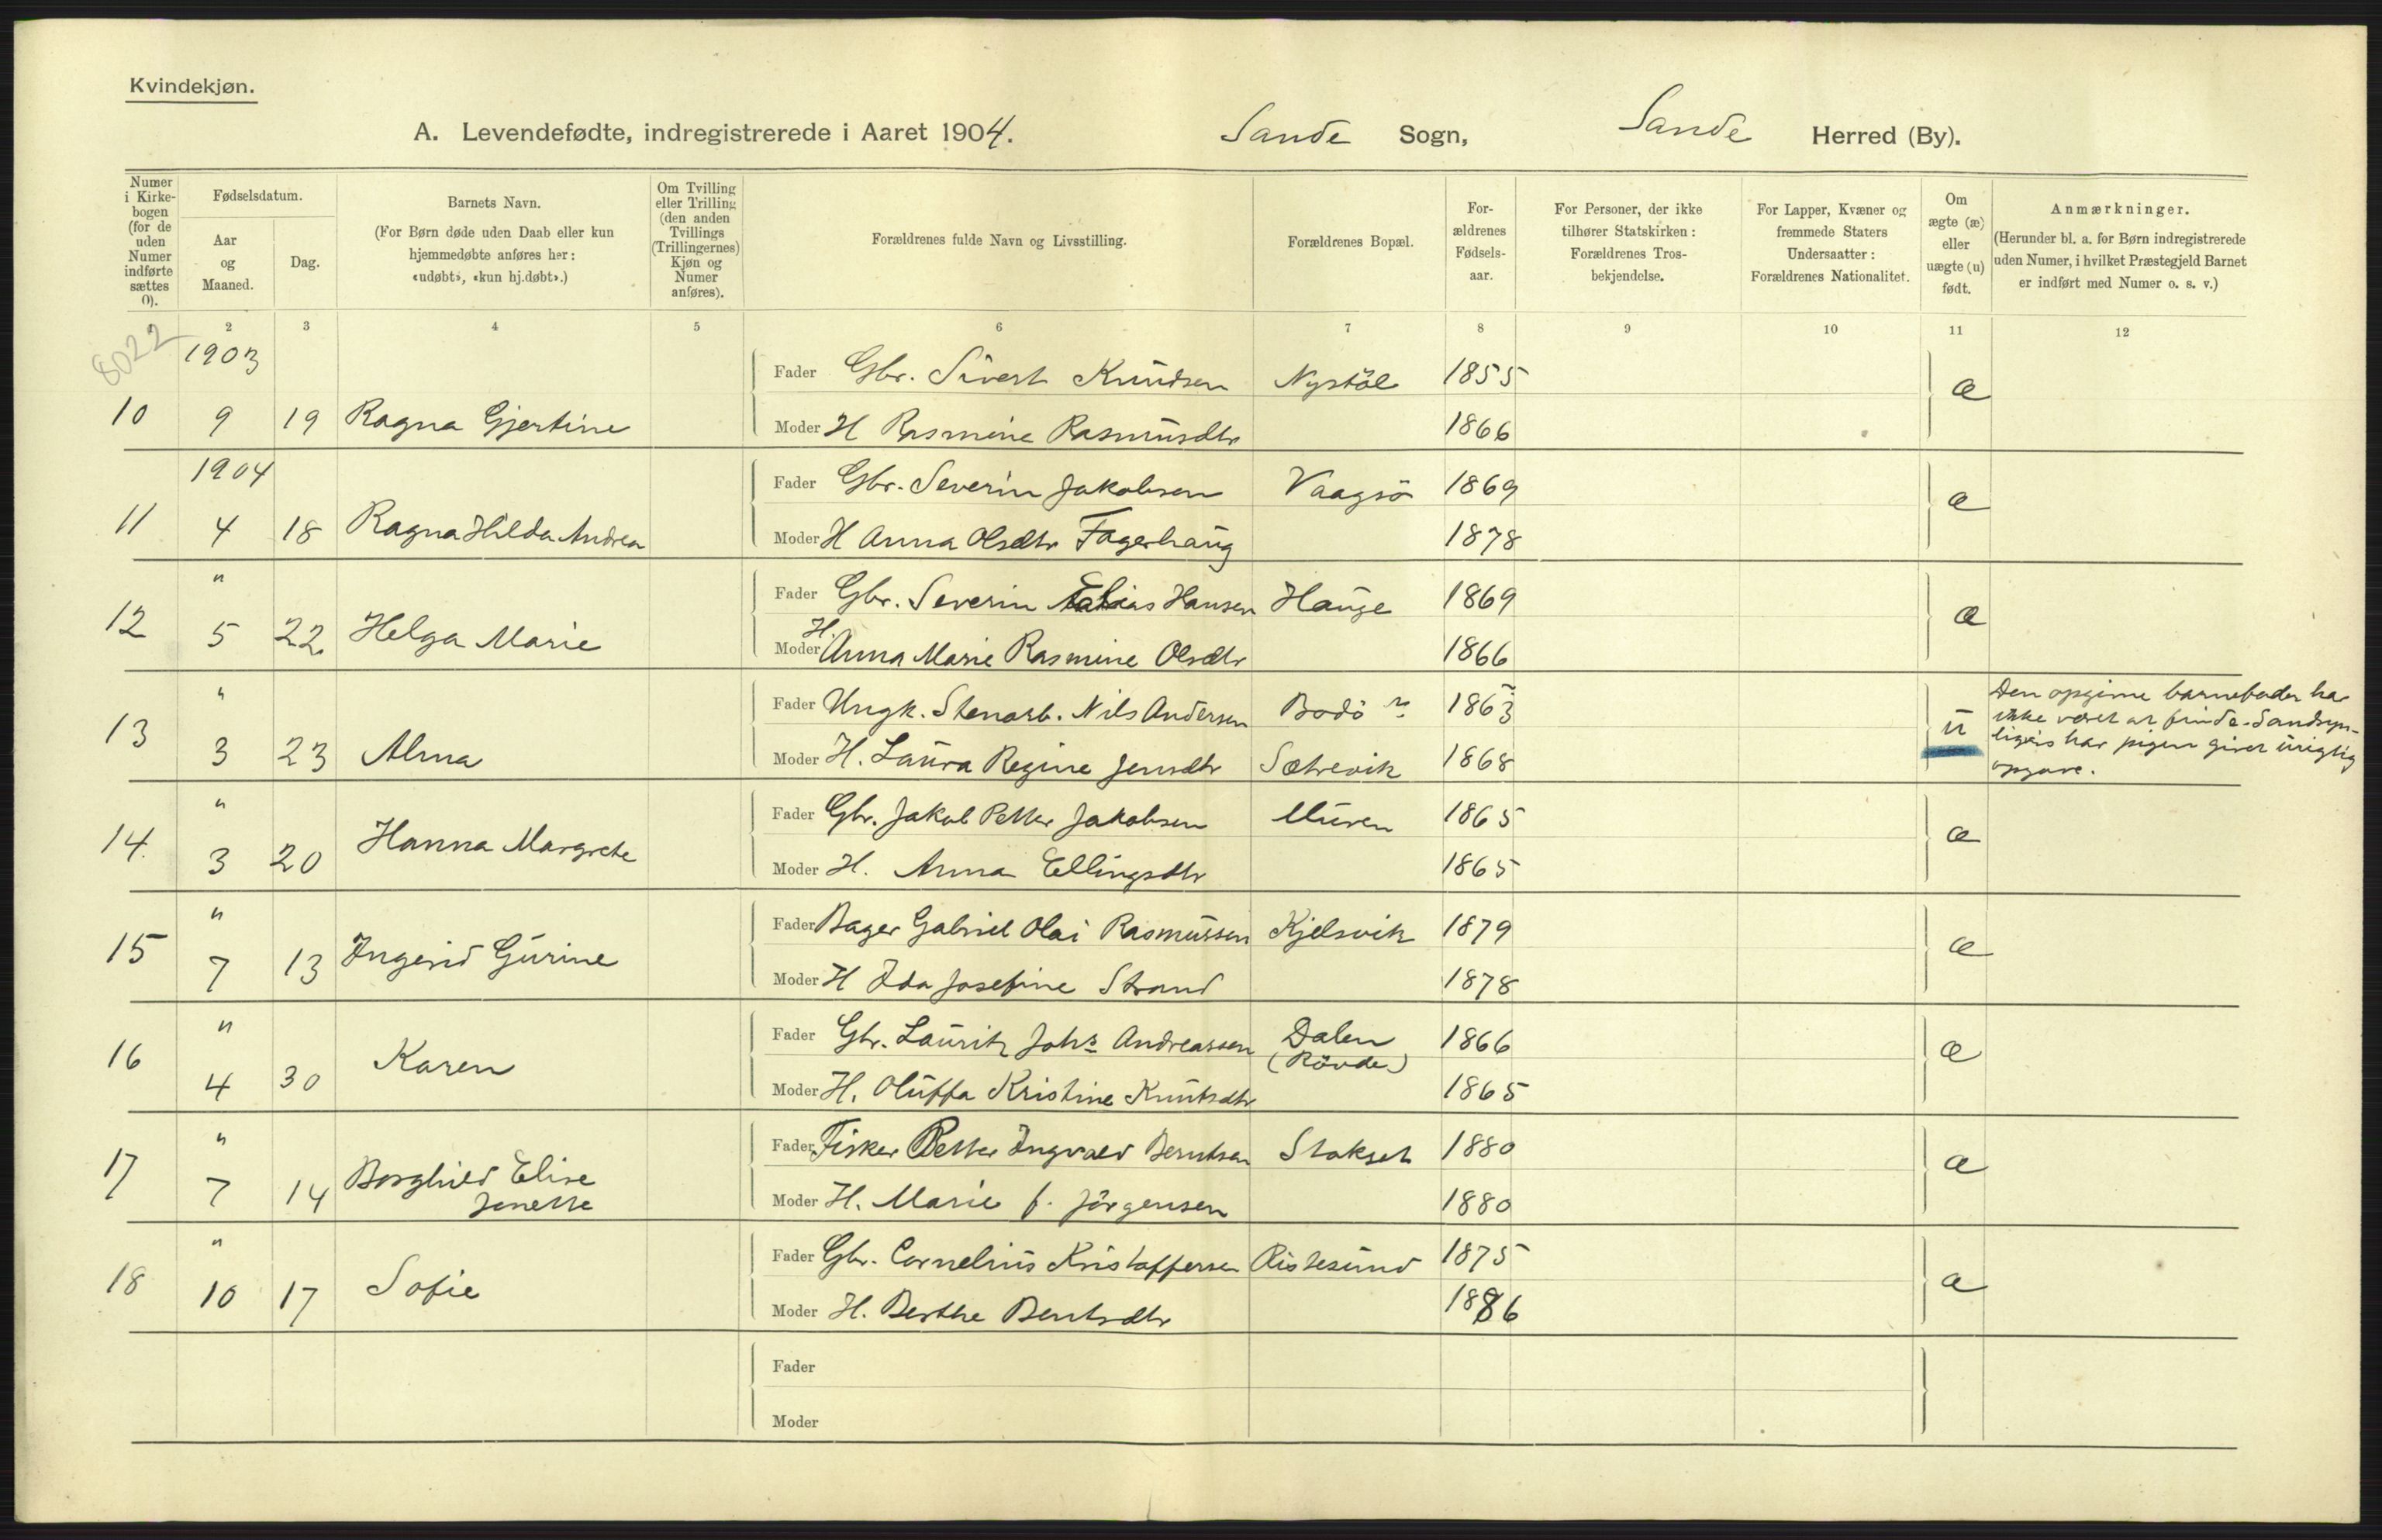 Kvindekjøn.
A. Levendefødte, indregistrerede i Aaret 1904. Sande Sogn, Sande Herred (By).
Numer i Kirke-bogen (for de uden Numer indførte sættes 0).
Fødselsdatum.
Aar og Maaned.
Dag.
Barnets Navn.
(For Børn døde uden Daab eller kun hjemmedøbte anføres her: «udøbt», «kun hj.døbt».)
Om Tvilling eller Trilling (den anden Tvillings (Trillingernes) Kjøn og Numer anføres).
Forældrenes fulde Navn og Livsstilling.
Forældrenes Bopæl.
For-ældrenes Fødsels-aar.
For Personer, der ikke tilhører Statskirken: Forældrenes Tros-bekjendelse.
For Lapper, Kvæner og fremmede Staters Undersaatter: Forældrenes Nationalitet.
Om ægte (æ) eller uægte (u) født.
Anmærkninger.
(Herunder bl. a. for Børn indregistrerede uden Numer, i hvilket Præstegjeld Barnet er indført med Numer o. s. v.)
2 3 4 5 6 7 8 9 10 11 12
8022
1903 Fader Gbr. Sivert Knudsen Nystöl 1855 æ
10 9 19 Ragna Gjertine Moder H Rasmine Rasmusdtr 1866
1904 Fader Gbr. Severin Jakobsen Vaagsö 1869 æ
11 4 18 Ragna Hilda Andrea Moder H Anna Olsdtr Fagerhaug 1878
" Fader Gbr. Severin Tobias Hansen Hauge 1869 æ
12 5 22. Helga Marie Moder H. Anna Marie Rasmine Olsdtr 1866
" Fader Ungk. Stenarb. Nils Andersen Bodö 1863 u
13 3 23 Alma Moder H. Laura Regine Jensdtr Sætrevik 1868
Den opgivne barnefader har
ikke været at finde. Sandsyn-
ligvis har pigen givet urigtig
opgave.
" Fader Gbr. Jakob Petter Jakobsen Muren 1865 æ
14. 3 20 Hanna Margrete Moder H. Anna Ellingsdtr 1865
" Fader Bager Gabriel Olai Rasmussen Kjelsvik 1879 æ
15 7 13 Ingerid Gurine Moder H Ida Josefine Strand 1878
" Fader Gbr. Lauritz Johs Andreassen Dalen 1866 æ
(Rövde)
16 4 30 Karen Moder H. Oluffa Kristine Knutsdtr 1865
" Fader Fisker Petter Ingvald Berntsen Stokset 1880 æ
17 7 14 Borghild Elise
Jenette Moder H. Marie f. Jörgensen 1880
" Fader Gbr. Cornelius Kristoffersen Ristesund 1875 æ
18 10 17 Sofie Moder H. Berthe Berntsdtr 1886
Fader
Moder